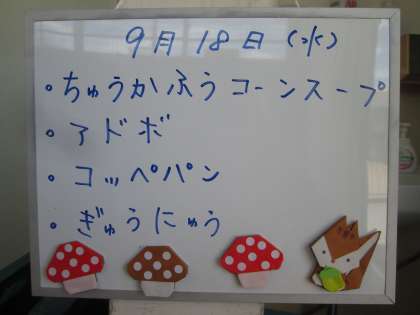 9月18日(水)
・ちゅうかふうコーンスープ
・アドボ
・コッペパン
・ぎゅうにゅう